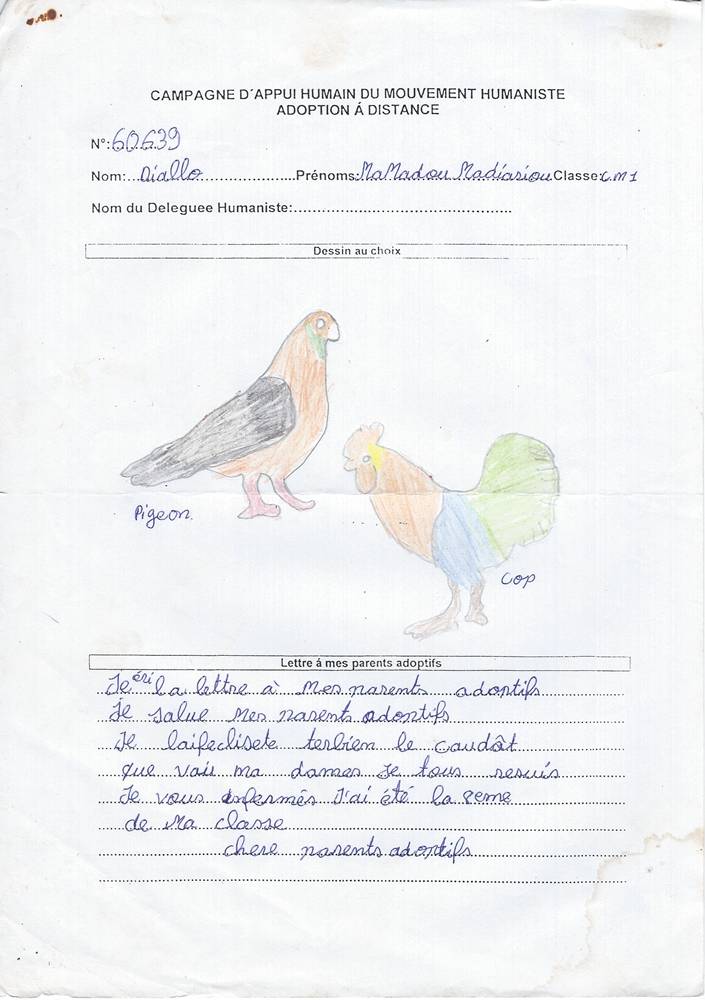 CAMPAGNE D´APPUI HUMAIN DU MOUVEMENT HUMANISTE
ADOPTION Á DISTANCE
N°:60639
Nom:...Diallo......................Prénoms:MaMadou Madiariou Classe:C.M1
Nom du Deleguee Humaniste:.............................................
Dessin au choix
Pigeon.
Cop
Lettre á mes parents adoptifs
Je éri la lettre à Mes parents adoptifs
Je salue Mes parents adoptifs
Je laifeclisete terbien le caudôt
que vais ma dames Je tous resuis
Je vous enfermés J'ai été la 8eme
de Ma classe
chere parents adoptifs